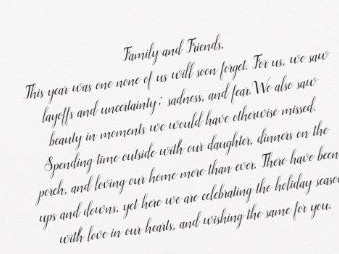 Family and Friends,
This year was one none of us will soon forget. For us, we saw
layoffs and uncertainty; sadness, and fear. We also saw
beauty in moments we would have otherwise missed.
Spending time outside with our daughter, dinners on the
porch, and loving our home more than ever. There have been
ups and downs, yet here we are celebrating the holiday season
with love in our hearts, and wishing the same for you.